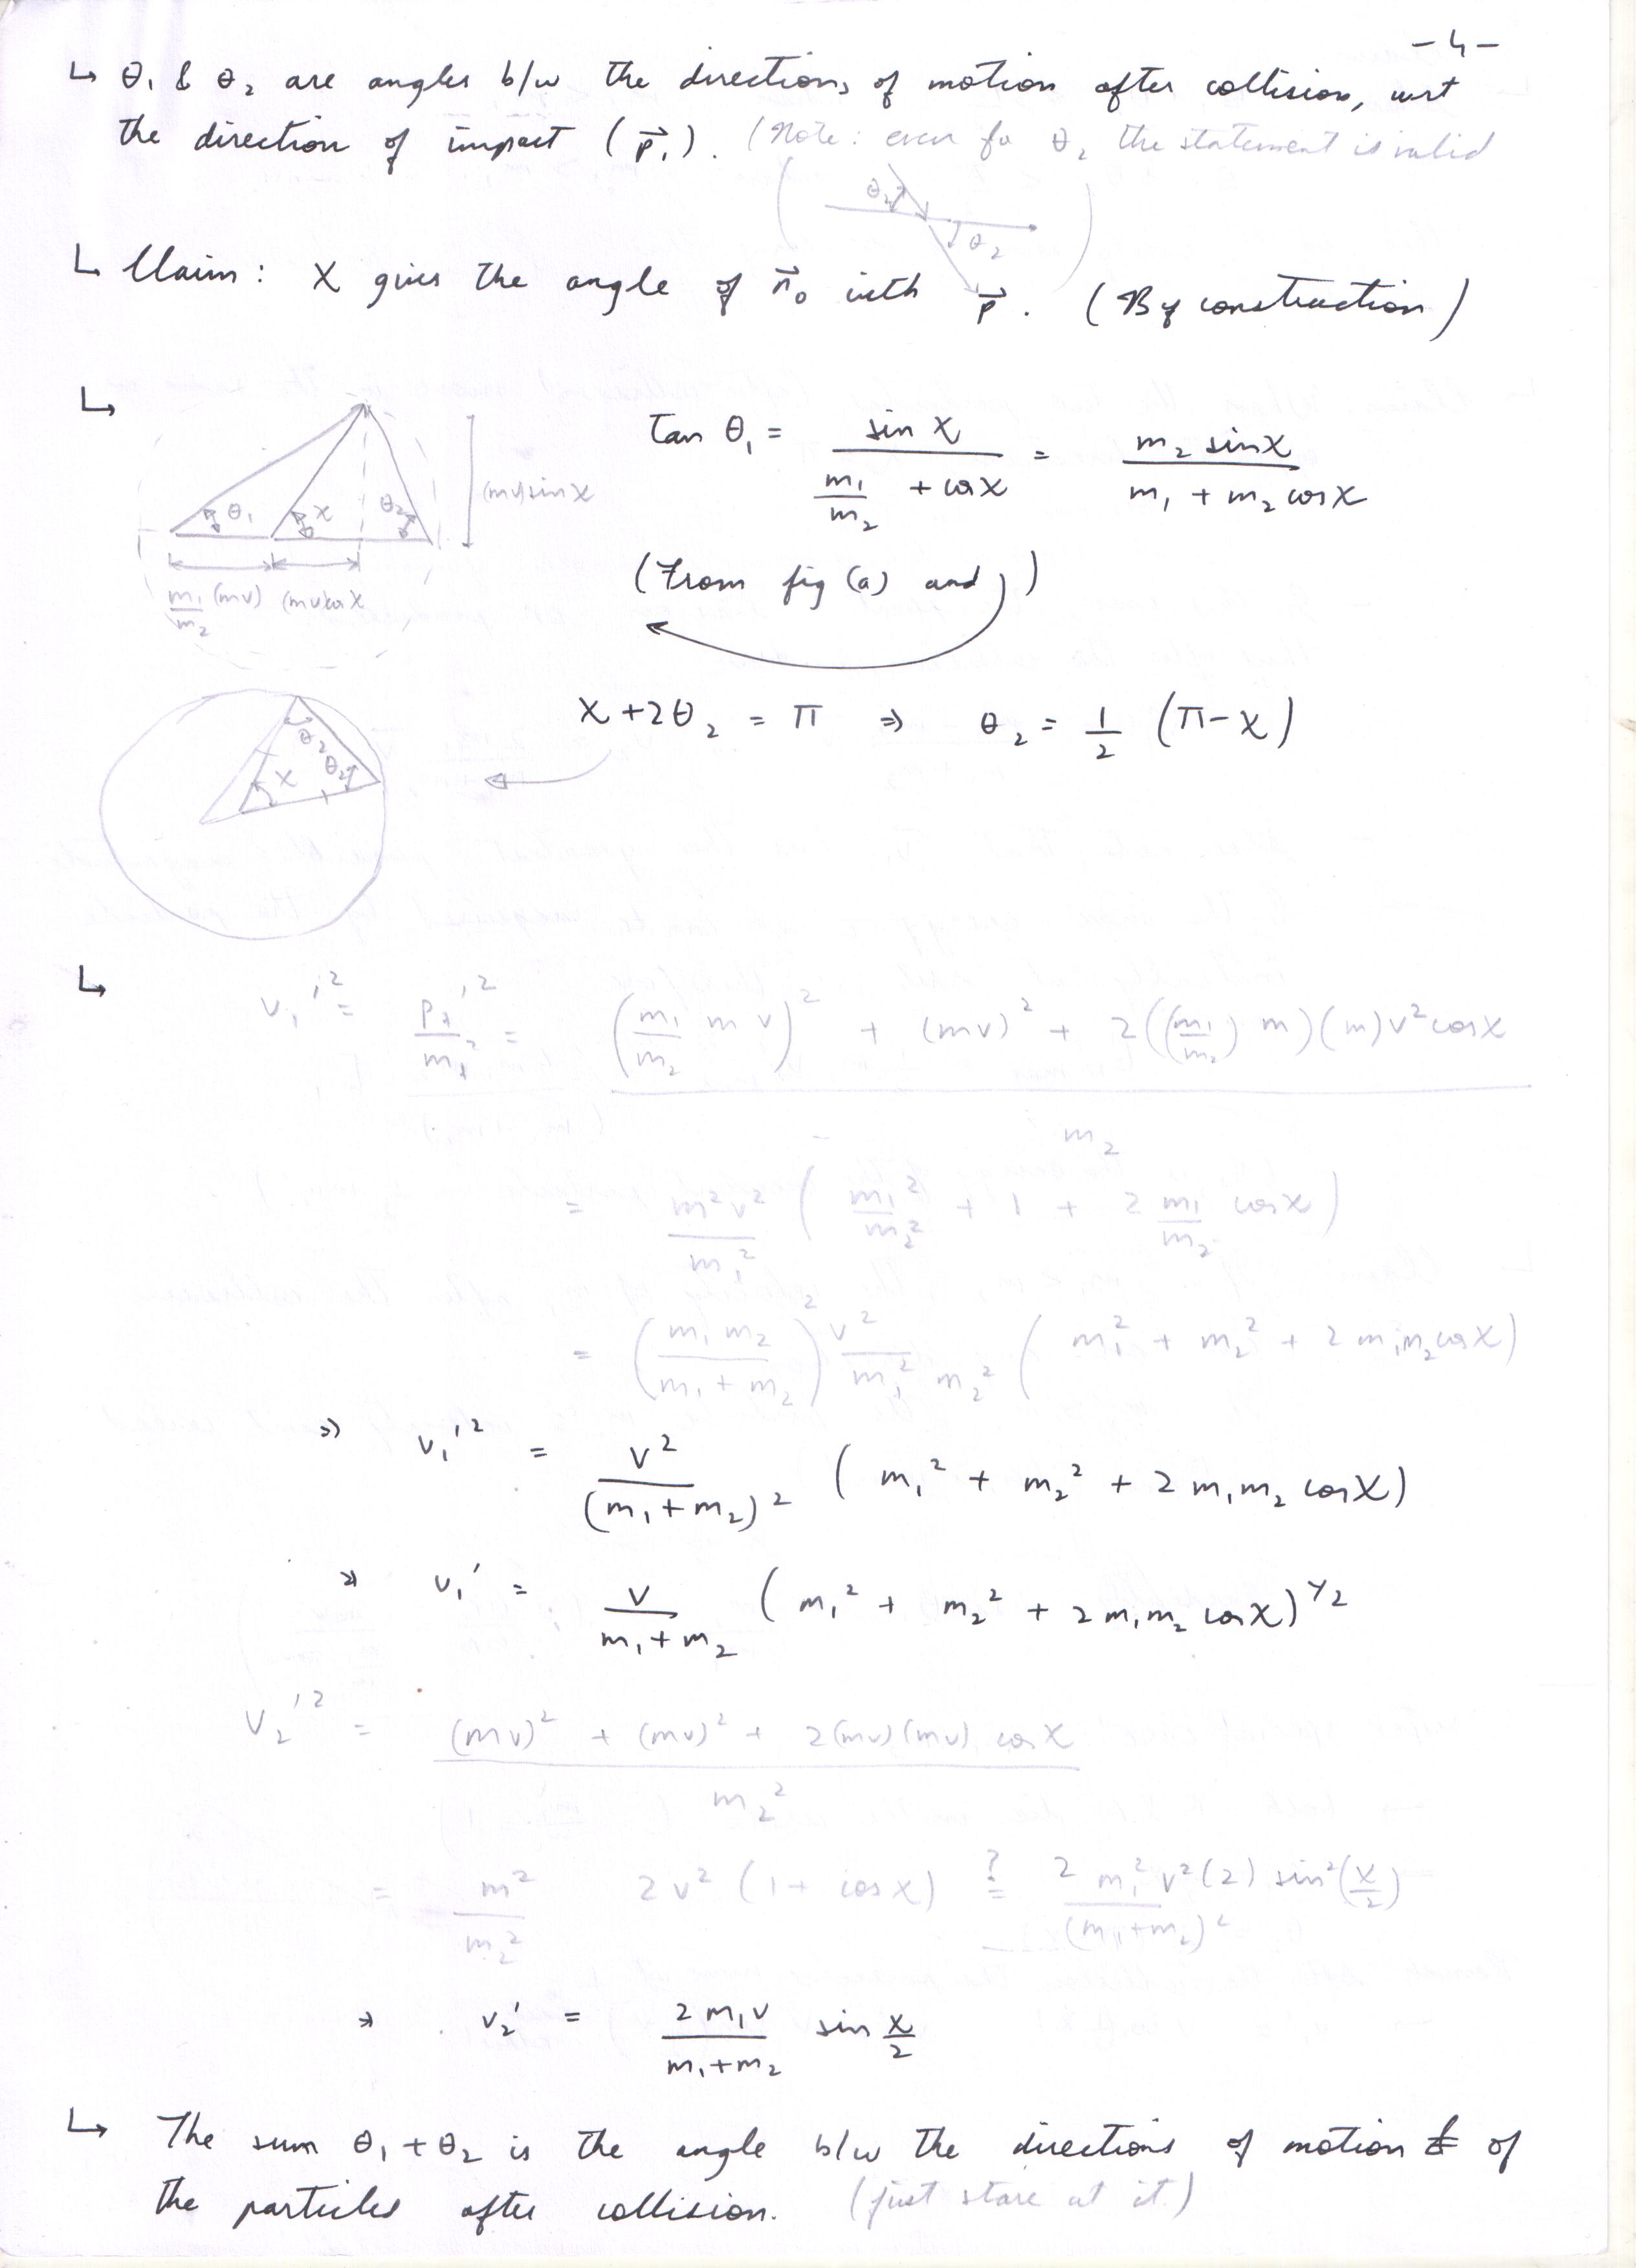 -4-
↳ θ₁ & θ₂ are angles b/w the directions of motion after collision, wrt
the direction of impact (p⃗₁). (Note: even for θ₂ the statement is valid
θ₂
θ₂
↳ Claim: χ gives the angle of n⃗₀ with p⃗. (By construction)
↳ tan θ₁ = sin χ / (m₁/m₂ + cos χ) = m₂ sin χ / (m₁ + m₂ cos χ)
θ₁ χ θ₂ (mv) sin χ
m₁/m₂ (mv) (mv) cos χ
(From fig (a) and )
χ + 2θ₂ = π ⇒ θ₂ = 1/2 (π - χ)
θ₂
χ θ₂
↳ v₁'² = p₁'²/m₁² = (m₁/m₂ m v)² + (mv)² + 2((m₁/m₂) m)(m)v² cos χ
m₂
= m²v²/m₁² (m₁²/m₂² + 1 + 2 m₁/m₂ cos χ)
= (m₁m₂/(m₁+m₂))² v²/(m₁² m₂²) (m₁² + m₂² + 2m₁m₂ cos χ)
⇒ v₁'² = v²/(m₁+m₂)² (m₁² + m₂² + 2m₁m₂ cos χ)
⇒ v₁' = v/(m₁+m₂) (m₁² + m₂² + 2m₁m₂ cos χ)^1/2
v₂'² = ((mv)² + (mv)² + 2(mv)(mv) cos χ)/m₂²
= m²/m₂² 2v² (1 + cos χ) ?= 2 m₁² v² (2) sin²(χ/2)/(m₁+m₂)²
⇒ v₂' = 2m₁v/(m₁+m₂) sin χ/2
↳ The sum θ₁+θ₂ is the angle b/w the directions of motion of
the particles after collision. (just stare at it)